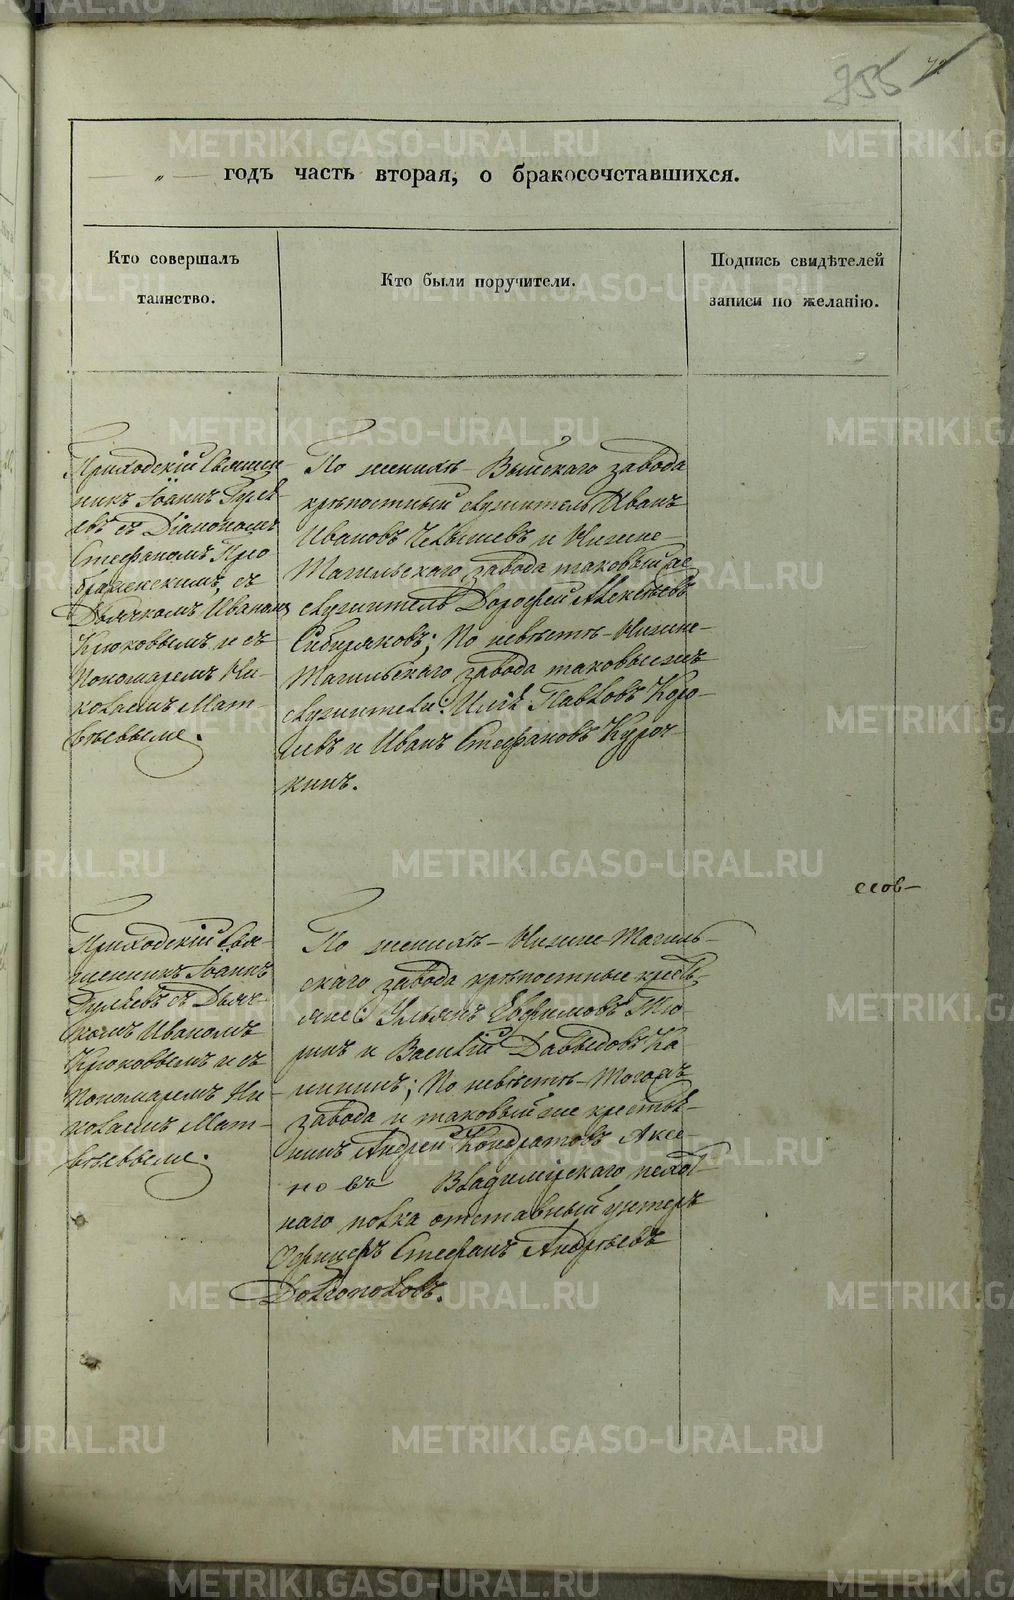 955
72
— „ — годъ часть вторая, о бракосочетавшихся.
Кто совершалъ
таинство.
Кто были поручители.
Подпись свидѣтелей
записи по желанію.
Приходскій Священ
никъ Іоаннъ Гулѣ
евъ съ Діакономъ
Стефаномъ Прео
браженскимъ, съ
Дьячкомъ Иваномъ
Крюковымъ и съ
Пономаремъ Ни-
колаемъ Мат-
вѣевымъ.
По женихѣ – Выйскаго завода
крѣпостный служитель Иванъ
Ивановъ Чебышевъ и Нижне
Тагильскаго завода таковый же
служитель Дорофей Алексѣевъ
Сибиряковъ; По невѣстѣ – Нижне-
Тагильскаго завода таковые жъ
служители: Илья Павловъ
и Иванъ Стефановъ Куроч
кинъ.
слов-
Приходскій Свя-
щенникъ Іоаннъ
Гулѣевъ съ Дьяч-
комъ Иваномъ
Крюковымъ и съ
Пономаремъ Ни-
колаемъ Мат-
вѣевымъ.
По женихѣ – Нижне-Тагиль-
скаго завода крѣпостные кресть-
яне Ульянъ Евфимовъ Тю-
ринъ и Василій Давыдовъ Ка
лининъ; По невѣстѣ – Тогожъ
завода и таковый же крестья-
нинъ Андрей Кондратовъ Аксе-
новъ Владимірскаго пехот-
наго полка отставный унтеръ
Офицеръ Стефанъ Андреевъ
Долгополовъ.
METRIKI.GASO-URAL.RU